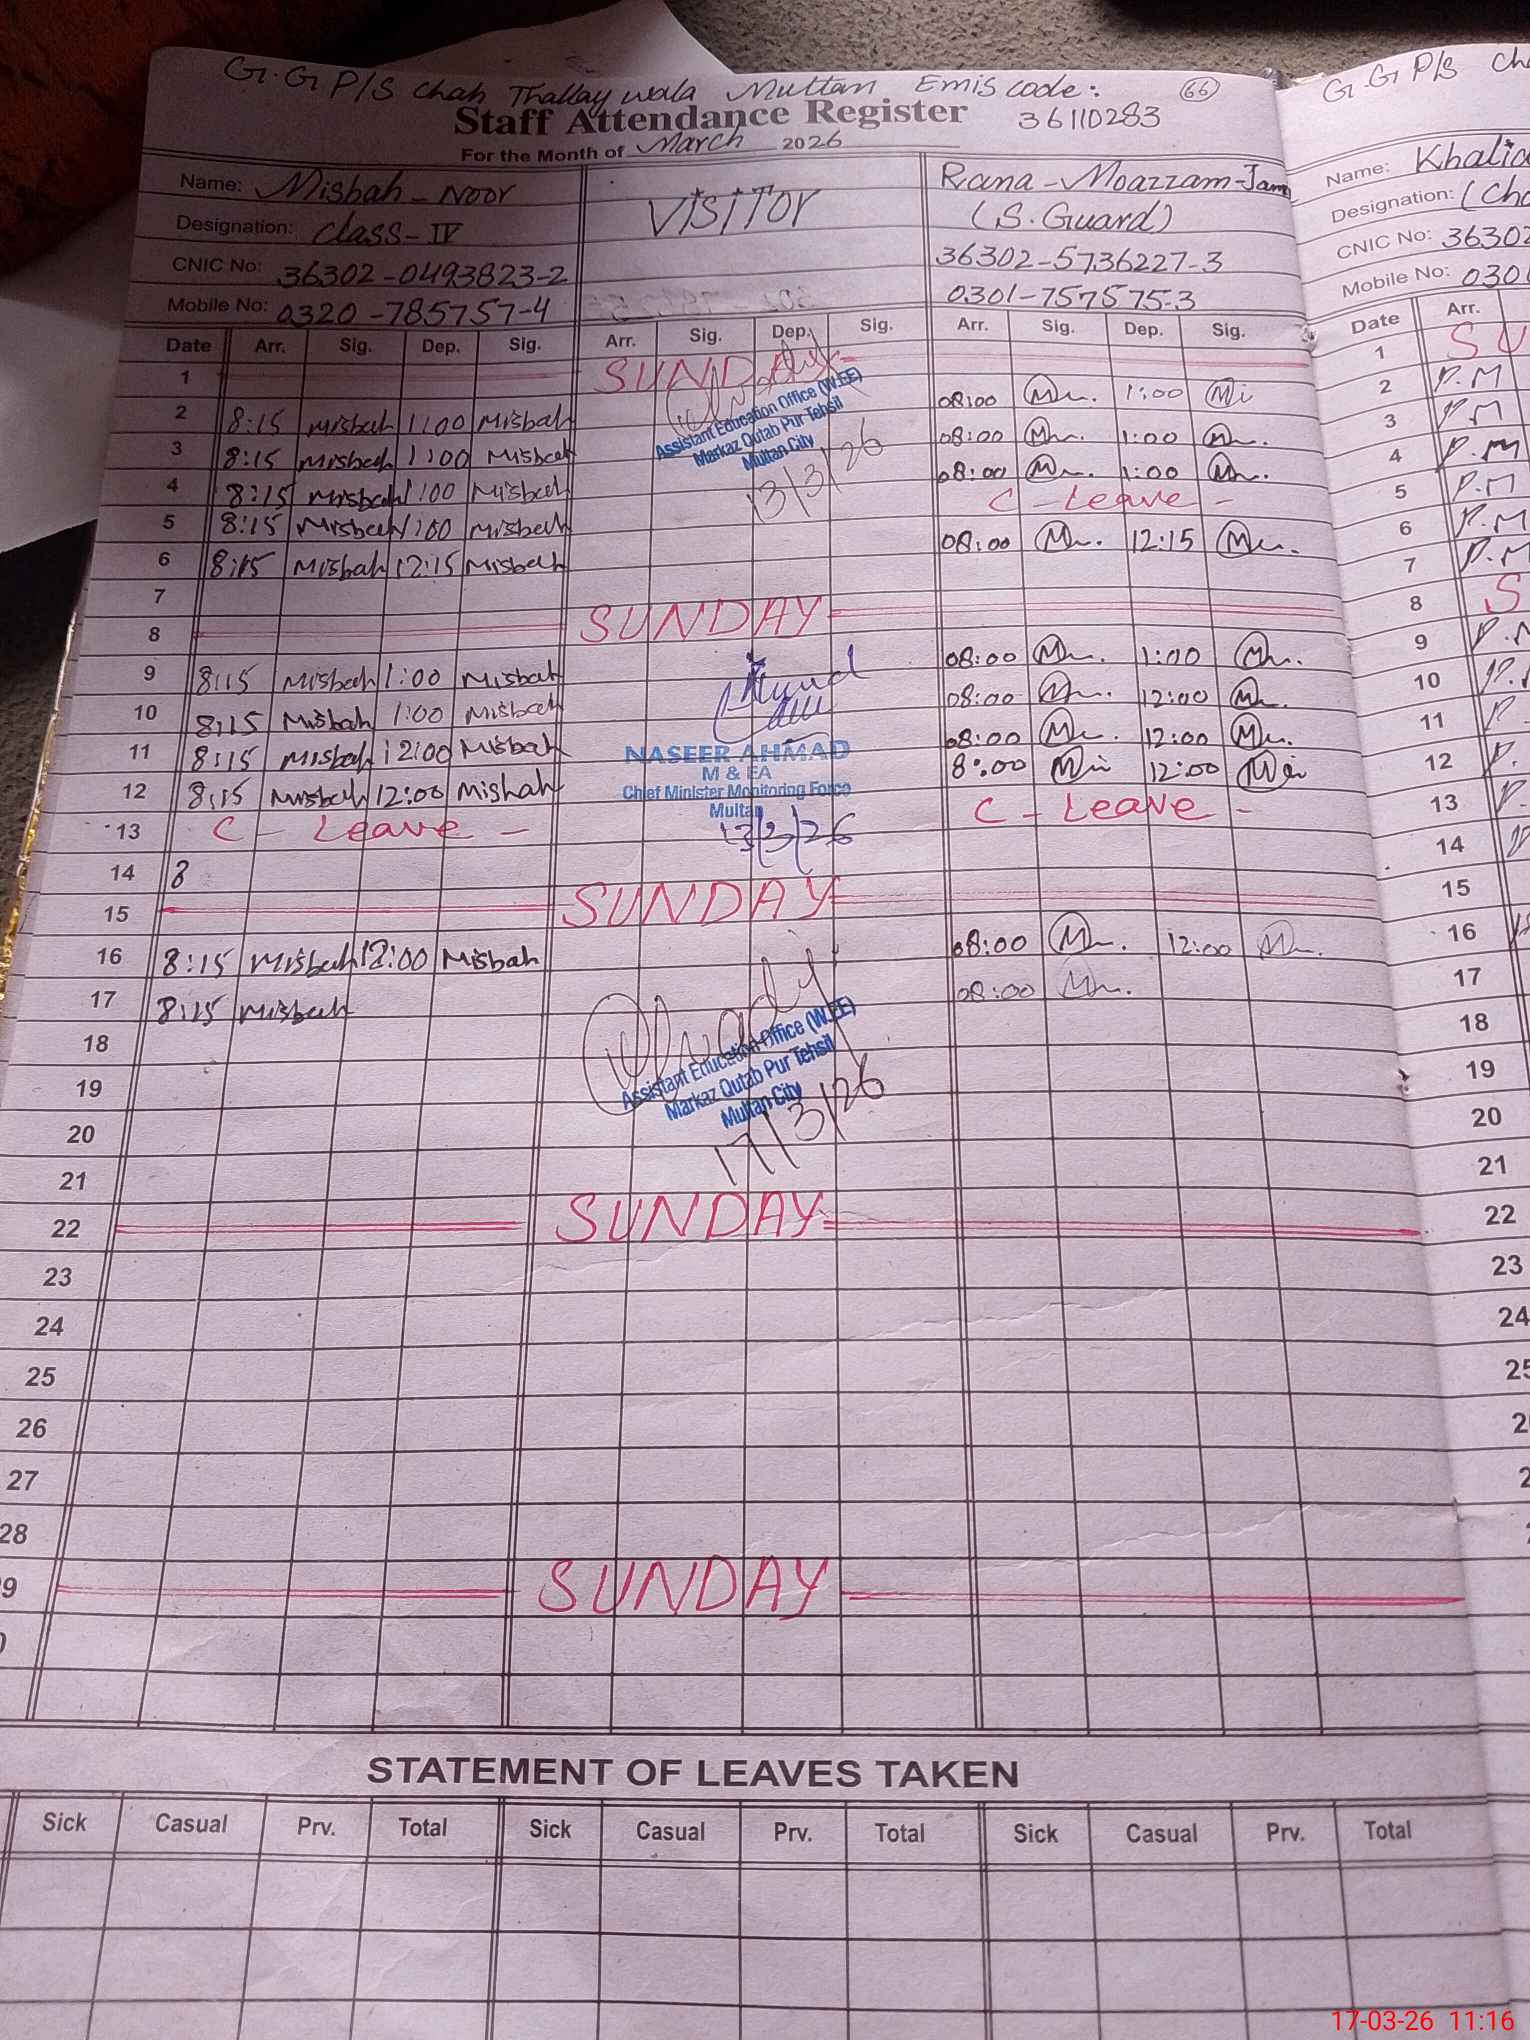 G.G P/S Chah Thallay wala Multan Emis code:
66
Staff Attendance Register 36110283
For the Month of March 2026
Name: Misbah - Noor
Designation: Class - IV
CNIC No: 36302-0493823-2
Mobile No: 0320-785757-4
VISITOR
Rana - Moazzam - Jam
(S. Guard)
36302-5736227-3
0301-757575-3
Date Arr. Sig. Dep. Sig. Arr. Sig. Dep. Sig. Arr. Sig. Dep. Sig.
1 SUNDAY
2 8:15 Misbah 1:00 Misbah 08:00 1:00
3 8:15 Misbah 1:00 Misbah 08:00 1:00
4 8:15 Misbah 1:00 Misbah 08:00 1:00
5 8:15 Misbah 1:00 Misbah C - Leave -
6 8:15 Misbah 12:15 Misbah 08:00 12:15
Assistant Education Office (W.EE)
Markaz Qutab Pur Tehsil
Multan City
13/3/26
7
8 SUNDAY
9 8:15 Misbah 1:00 Misbah 08:00 1:00
10 8:15 Misbah 1:00 Misbah 08:00 12:00
11 8:15 Misbah 12:00 Misbah 08:00 12:00
12 8:15 Misbah 12:00 Misbah 8:00 12:00
NASEER AHMAD
M & EA
Chief Minister Monitoring Force
Multan
13/3/26
13 C - Leave - C - Leave -
14 8
15 SUNDAY
16 8:15 Misbah 12:00 Misbah 08:00 12:00
17 8:15 Misbah 08:00
Assistant Education Office (W.EE)
Markaz Qutab Pur Tehsil
Multan City
17/3/26
18
19
20
21
22 SUNDAY
23
24
25
26
27
28
9 SUNDAY
STATEMENT OF LEAVES TAKEN
Sick Casual Prv. Total Sick Casual Prv. Total Sick Casual Prv. Total
G.G P/S
Name: Khalid
Designation: (
CNIC No: 36302
Mobile No: 030
Date Arr.
1 SU
2 P.M
3 P.M
4 P.M
5 P.M
6 P.M
7 P.M
8 S
9
10
11
12
13
14
15
16
17
18
19
20
21
22
23
24
25
17-03-26 11:16